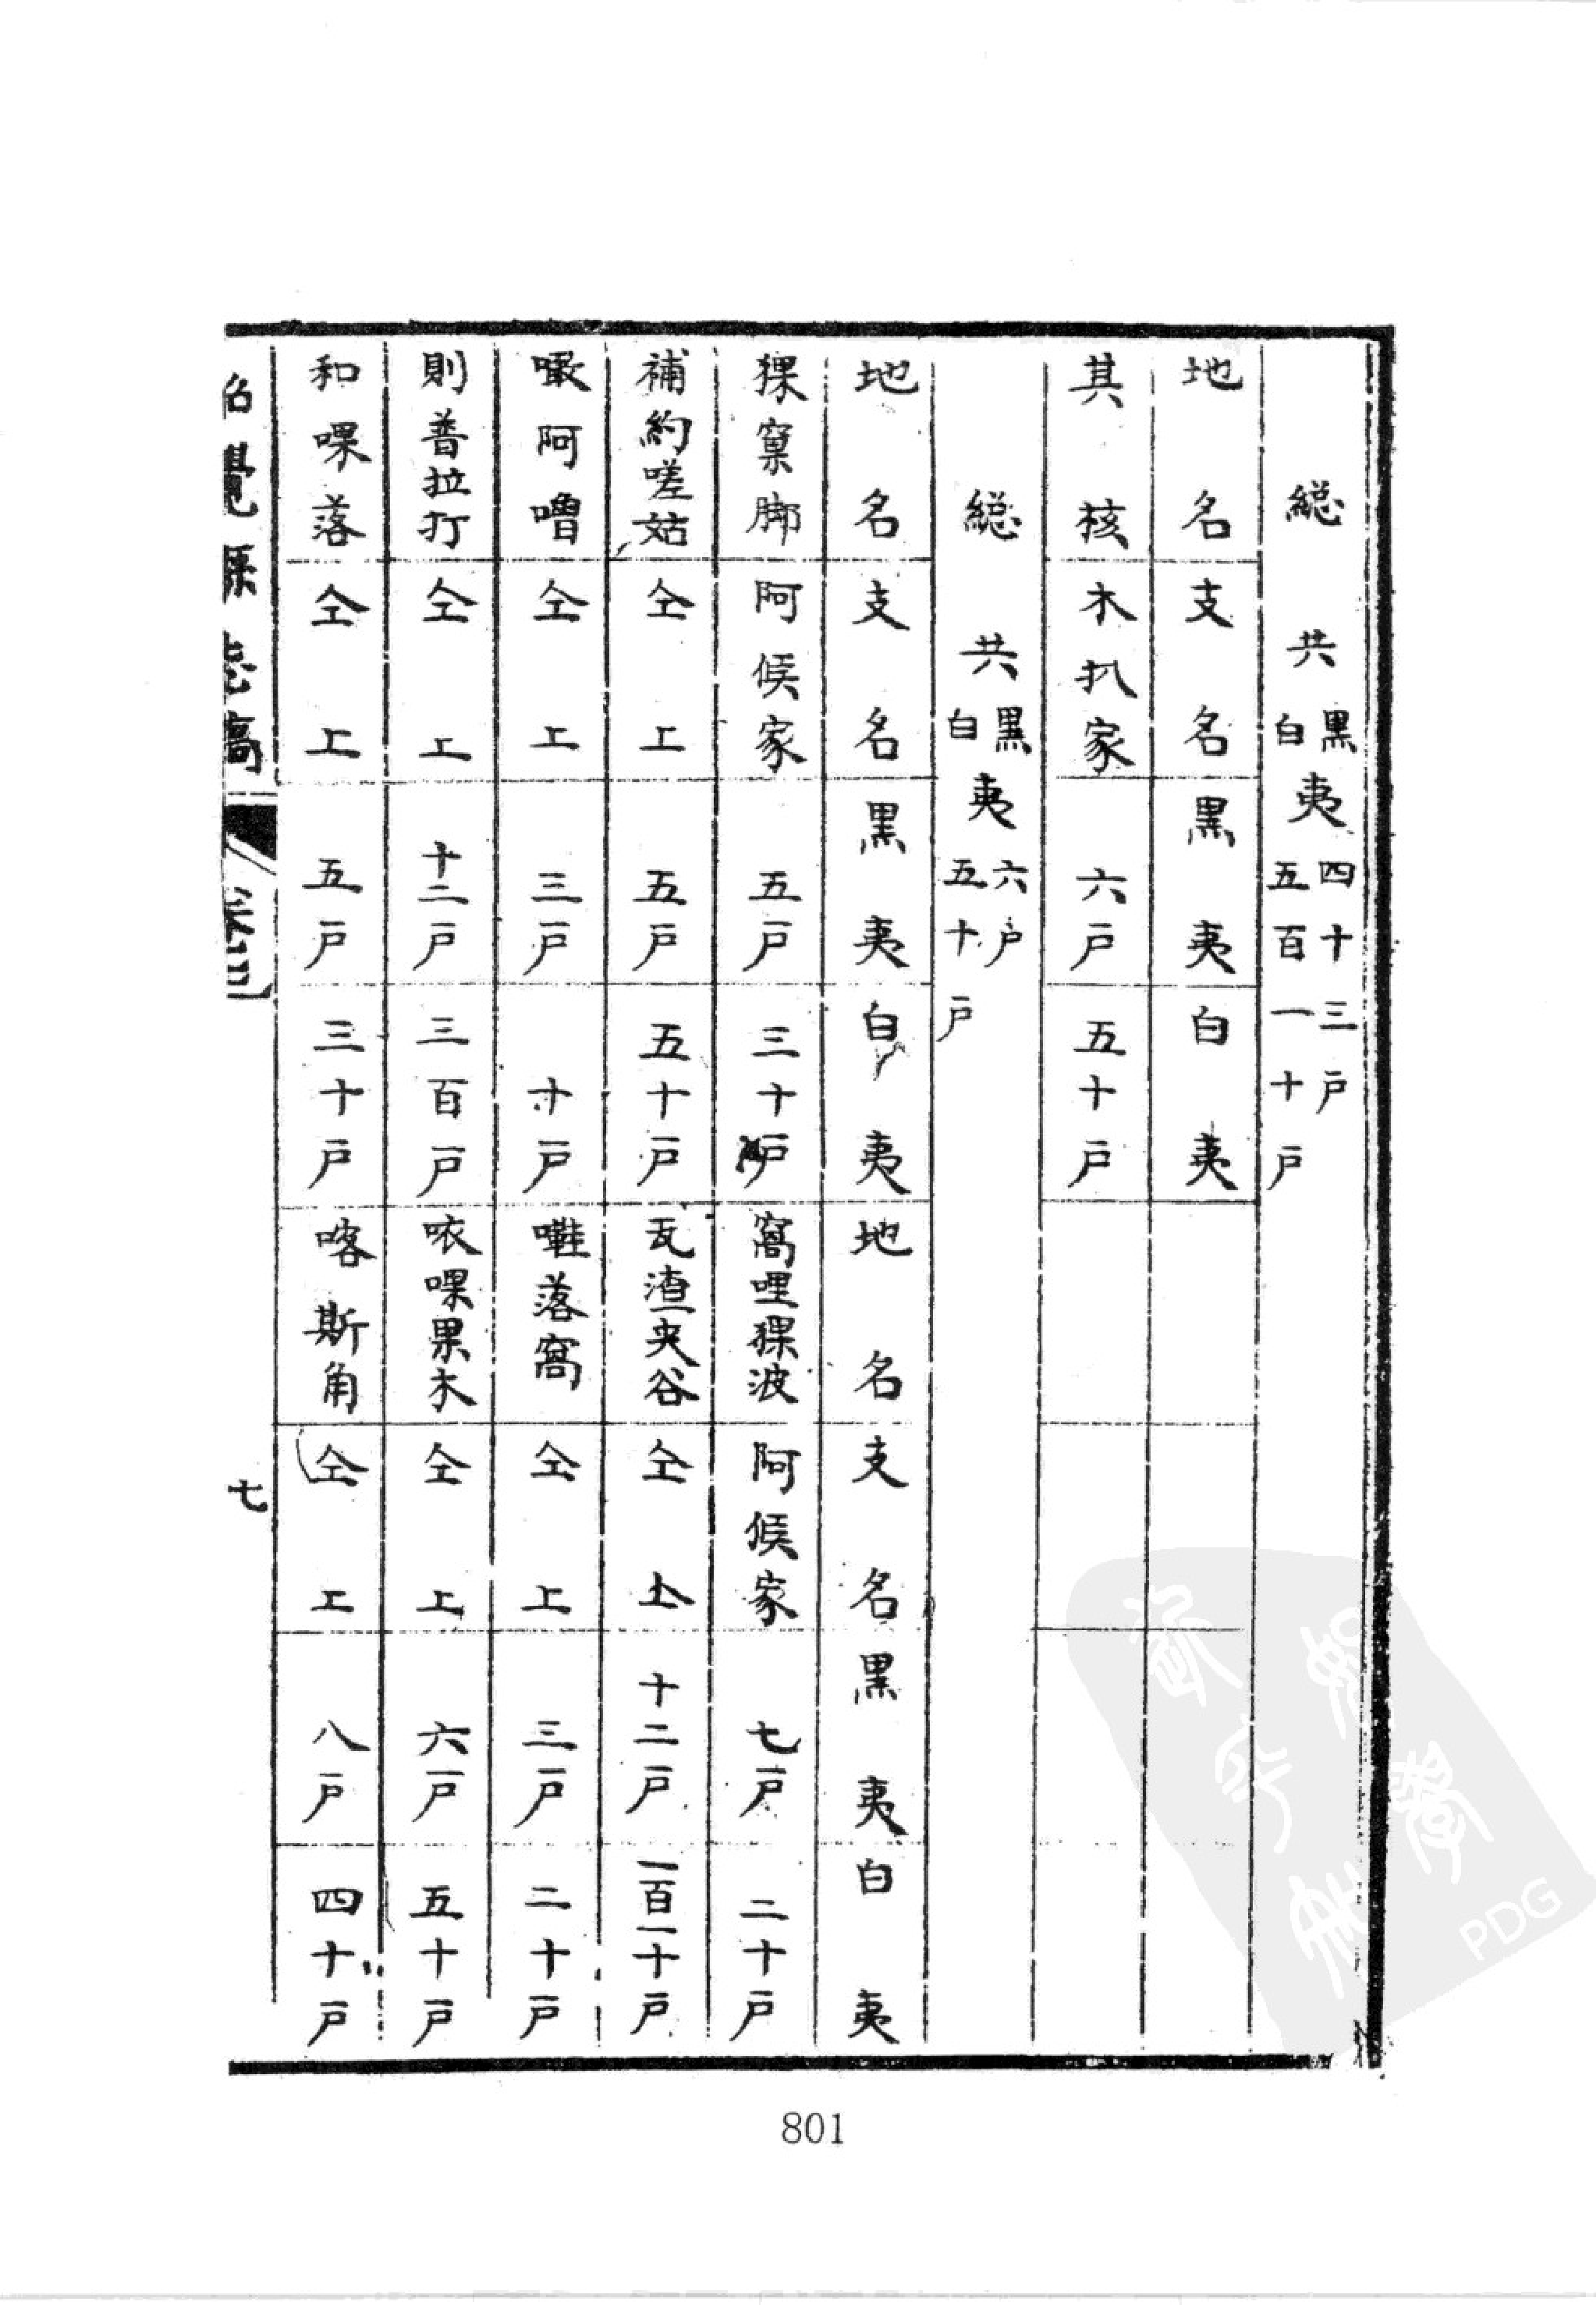 総 共 黑夷四十三戶 白夷五百一十戶
地名 支名 黑夷 白夷
其核 木扒家 六戶 五十戶
総 共 黑夷六戶 白夷五十戶
地名 支名 黑夷 白夷 地名 支名 黑夷 白夷
猓窠脚 阿候家 五戶 三十戶 窩哩猓波 阿候家 七戶 二十戶
補約嗟姑 仝上 五戶 五十戶 瓦渣夾谷 仝上 十二戶 一百一十戶
噉阿噜 仝上 三戶 十戶 嚡落窩 仝上 三戶 二十戶
則普拉打 仝上 十二戶 三百戶 咴啰果木 仝上 六戶 五十戶
和啰落 仝上 五戶 三十戶 喀斯角 仝上 八戶 四十戶
昭覺縣志稿 卷二 七
801
PDG